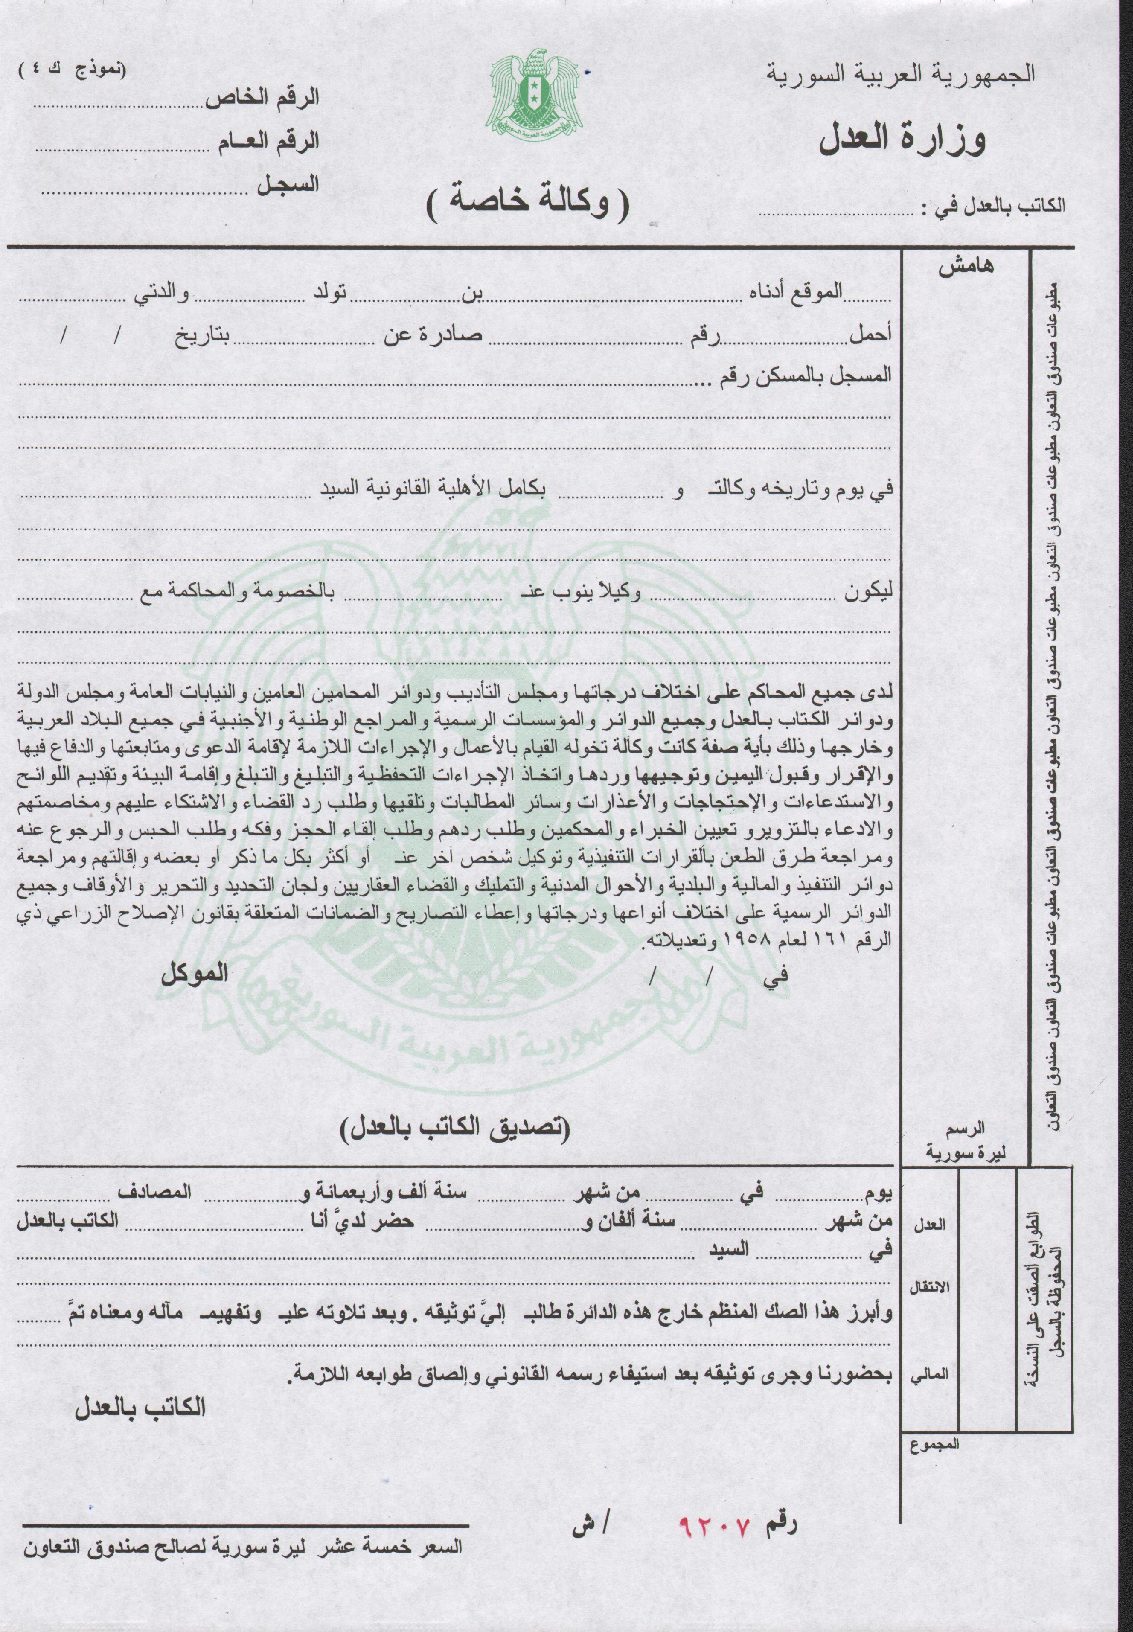 الجمهورية العربية السورية
وزارة العدل
الكاتب بالعدل في : ........................
(نموذج ك ٤ )
الرقم الخاص........................
الرقم العـام ........................
السجل ........................
( وكالة خاصة )
هامش
........الموقع أدناه ........................بن ................ تولد ................ والدتي ................
أحمل................رقم ........................ صادرة عن ................بتاريخ / /
المسجل بالمسكن رقم ........................
في يوم وتاريخه وكالتـ و ................ بكامل الأهلية القانونية السيد ........................
ليكون ........................ وكيلا ينوب عنـ ........................ بالخصومة والمحاكمة مع ................
لدى جميع المحاكم على اختلاف درجاتها ومجلس التأديب ودوائر المحامين العامين والنيابات العامة ومجلس الدولة
ودوائر الكتاب بالعدل وجميع الدوائر والمؤسسات الرسمية والمراجع الوطنية والأجنبية في جميع البلاد العربية
وخارجها وذلك بأية صفة كانت وكالة تخوله القيام بالأعمال والإجراءات اللازمة لإقامة الدعوى ومتابعتها والدفاع فيها
والإقرار وقبول اليمين وتوجيهها وردها واتخاذ الإجراءات التحفظية والتبليغ والتبلغ وإقامة البينة وتقديم اللوائح
والاستدعاءات والإحتجاجات والأعذارات وسائر المطالبات وتلقيها وطلب رد القضاء والاشتكاء عليهم ومخاصمتهم
والادعاء بالتزويرو تعيين الخبراء والمحكمين وطلب ردهم وطلب إلقاء الحجز وفكه وطلب الحبس والرجوع عنه
ومراجعة طرق الطعن بالقرارات التنفيذية وتوكيل شخص آخر عنـ او أكثر بكل ما ذكر او بعضه وإقالتهم ومراجعة
دوائر التنفيذ والمالية والبلدية والأحوال المدنية والتمليك والقضاء العقاريين ولجان التحديد والتحرير والأوقاف وجميع
الدوائر الرسمية على اختلاف أنواعها ودرجاتها وإعطاء التصاريح والضمانات المتعلقة بقانون الإصلاح الزراعي ذي
الرقم ١٦١ لعام ١٩٥٨ وتعديلاته.
في / / الموكل
الجمهورية العربية السورية
(تصديق الكاتب بالعدل)
يوم................ في ................ من شهر ................ سنة ألف وأربعمائة و................ المصادف ................
من شهر ........................ سنة ألفان و........................ حضر لديَّ أنا ........................ الكاتب بالعدل
في ................ السيد ........................
وأبرز هذا الصك المنظم خارج هذه الدائرة طالبـ إليَّ توثيقه . وبعد تلاوته عليـ وتفهيمـ مآله ومعناه تمَّ ........
بحضورنا وجرى توثيقه بعد استيفاء رسمه القانوني وإلصاق طوابعه اللازمة.
الكاتب بالعدل
الرسم
ليرة سورية
العدل
الانتقال
المالي
المجموع
الطوابع ألصقت على النسخة
المحفوظة بالسجل
مطبوعات صندوق التعاون مطبوعات صندوق التعاون مطبوعات صندوق التعاون مطبوعات صندوق التعاون مطبوعات صندوق التعاون صندوق التعاون
رقم ٩٢٠٧ / ش
السعر خمسة عشر ليرة سورية لصالح صندوق التعاون